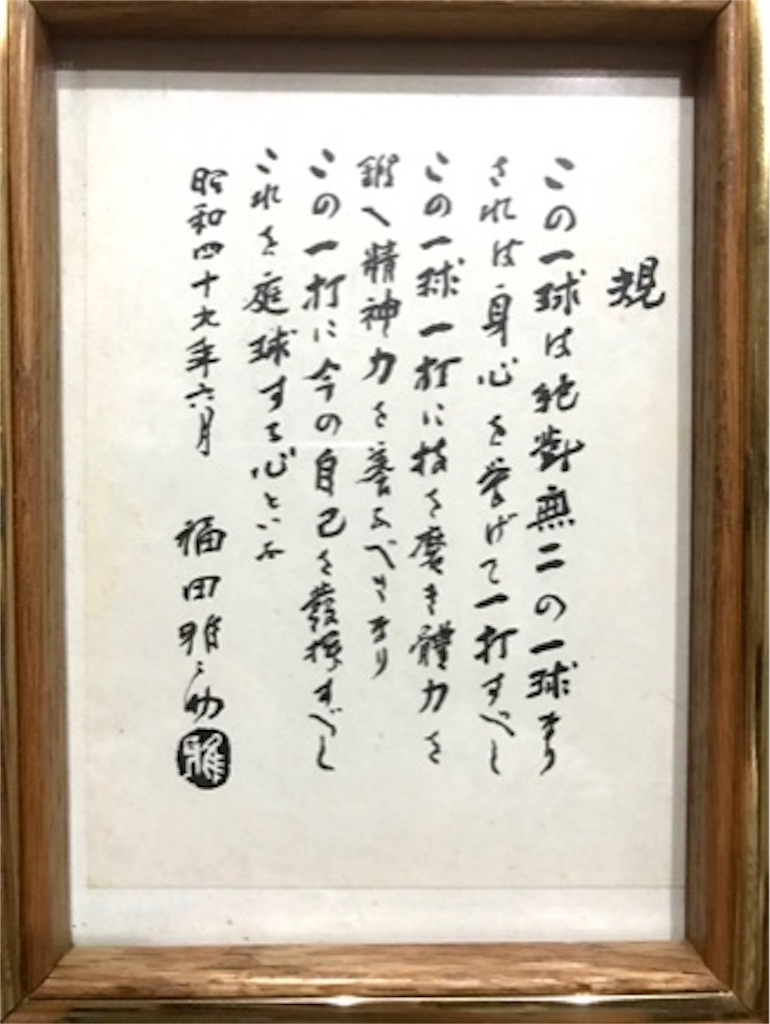 規
この一球は絶對無二の一球なり
されは身心を擧げて一打すべし
この一球一打に技を磨き體力を
鍛へ精神力を養ふべきなり
この一打に今の自己を發揮すべし
これを庭球する心といふ
昭和四十九年六月 福田雅之助
雅